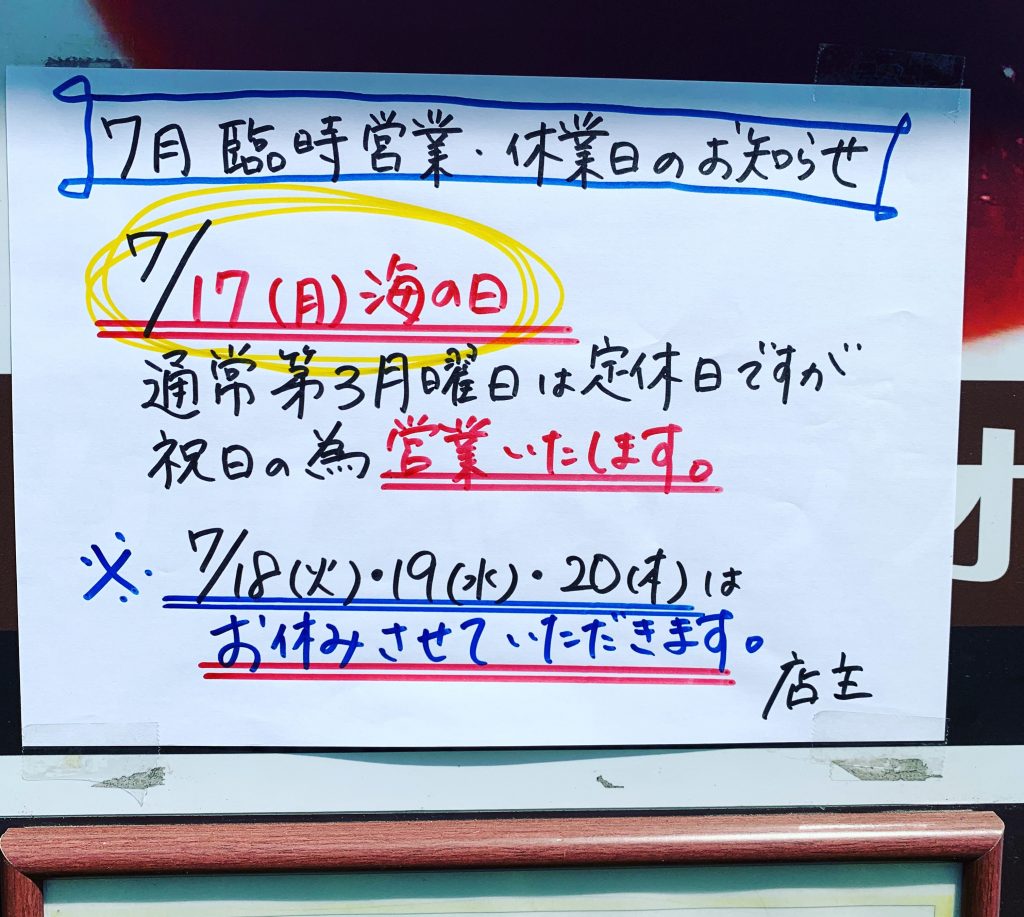 7月臨時営業・休業日のお知らせ
7/17(月)海の日
通常第3月曜日は定休日ですが
祝日の為営業いたします。
※7/18(火)・19(水)・20(木)は
お休みさせていただきます。
店主
オ